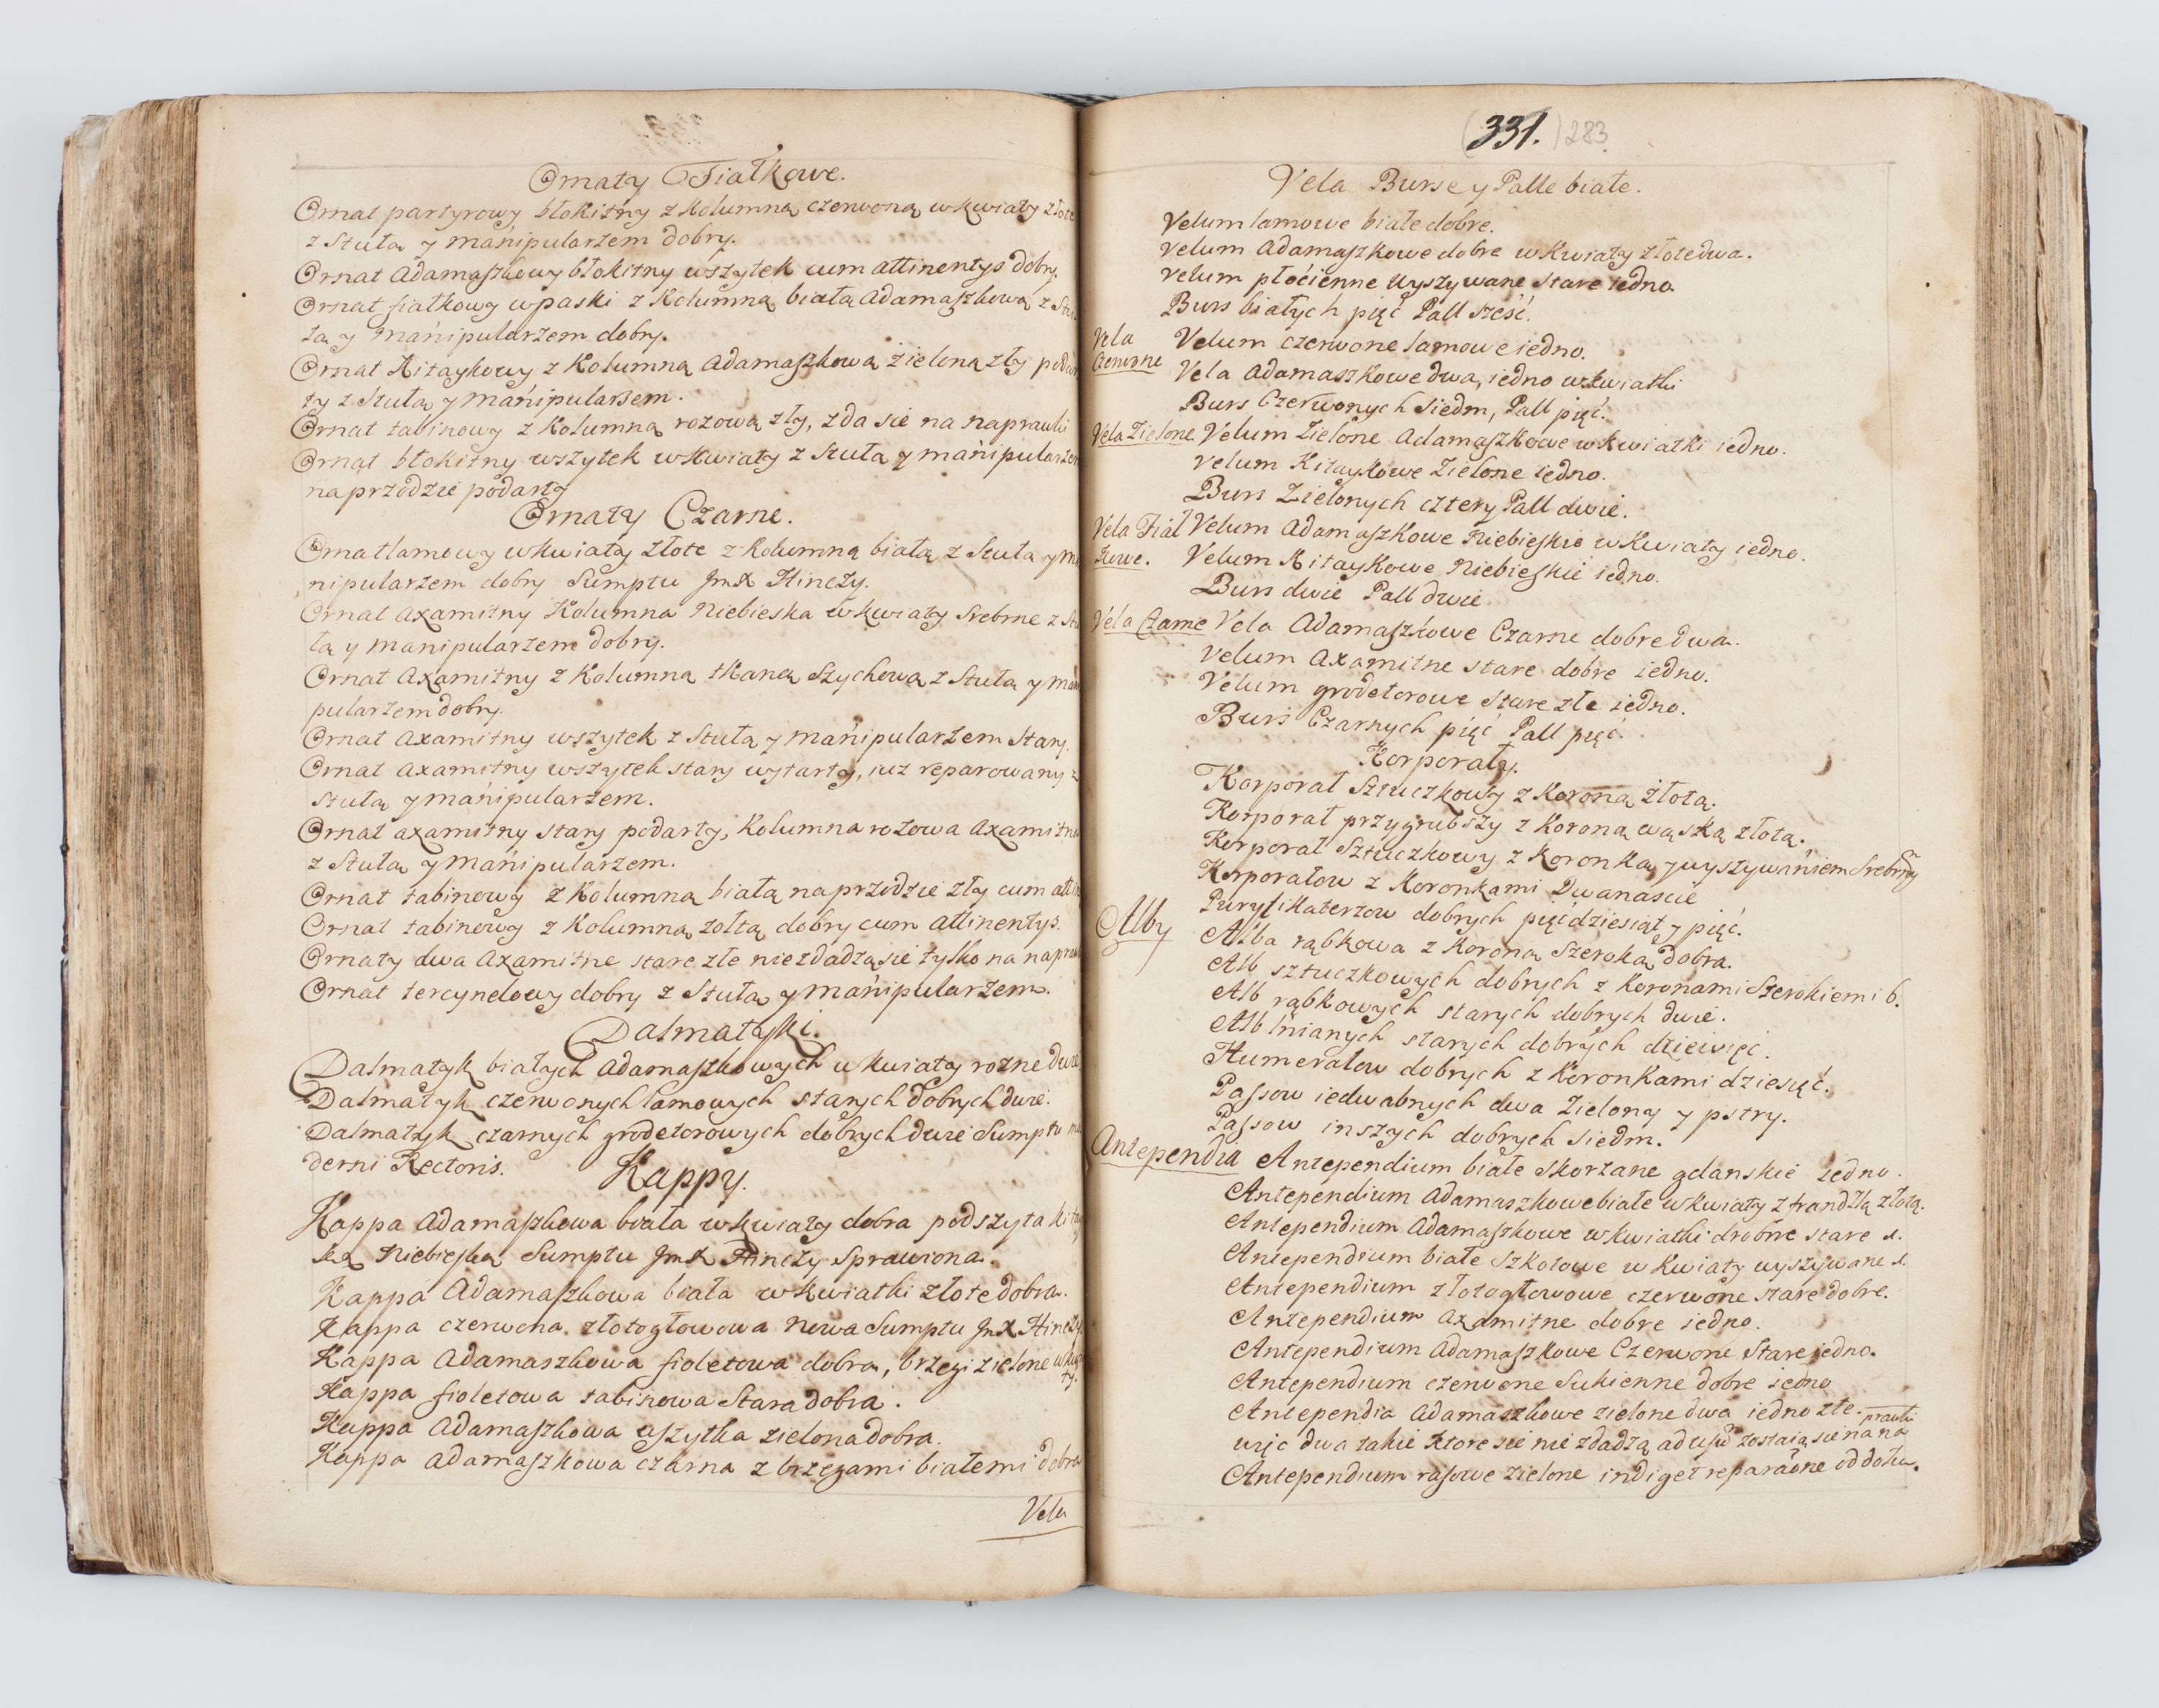 Ornaty Fiałkowe.
Ornat partyrowy błokitny z kolumną czerwoną w kwiaty złote
z Stułą y mánipularzem dobry.
Ornat Adamaszkowy błokitny wszytek cum attinentys dobry.
Ornat fiałkowy w paski z Kolumną białą Adamaszkową z Stu
łą y mánipularzem dobry.
Ornat Kitaykowy z Kolumną Adamaszkową zieloną zły podar
ty z Stułą y mánipularzem.
Ornat tabinowy z Kolumną rozową zły, zda sie na naprawki
Ornat błokitny wszytek w kwiaty z Stułą y mánipularzem
naprzodzie podarty
Ornaty Czarne.
Ornat lamowy w kwiaty złote z kolumną białą z Stułą y ma
nipularzem dobry Sumptu JmX Hinczy.
Ornat Axamitny Kolumna Niebieska w kwiaty Srebrne z Stu
łą y manipularzem dobry.
Ornat Axamitny z Kolumną tkaną Szychową z Stułą y mani
pularzem dobry.
Ornat Axamitny wszytek z Stułą y mánipularzem Stary.
Ornat Axamitny wszytek stary wytarty, iuz reparowany z
Stułą y mánipularzem.
Ornat axamitny stary podarty, Kolumna rozowa Axamitna
z Stułą y mánipularzem.
Ornat tabinowy z Kolumną białą naprzodzie zły cum attin
Ornat tabinowy z Kolumną zołtą dobry cum attinentys.
Ornaty dwa Axamitne stare złe niezdadzą sie tylko na napraw
Ornat tercynelowy dobry z Stułą y mánipularzem.
Dalmatyki.
Dalmatyk białych Adamaszkowych w kwiaty rozne dwie
Dalmatyk czerwonych lamowych starych dobrych dwie.
Dalmatyk czarnych grodetorowych dobrych dwie Sumptu mo
derni Rectoris.
Kappy.
Kappa Adamaszkowa biała w kwiaty dobra podszyta kitay
ką Niebieską Sumptu JmX Hinczy sprawiona.
Kappa Adamaszkowa biała w kwiatki złote dobra.
Kappa czerwona złotogłowowa nowa Sumptu JmX Hinczy
Kappa Adamaszkowa fioletowa dobra, brzegi zielone w kwia
ty.
Kappa fioletowa tabinowa Stara dobra.
Kappa Adamaszkowa wszytka zielona dobra.
Kappa Adamaszkowa czarna z brzegami białemi dobra
Vela
(331.) 283
Vela Burse y Palle białe.
Velum lamowe białe dobre.
Velum Adamaszkowe dobre w kwiaty złote dwa.
Velum płocienne wyszywane stare iedno.
Burs białych pięć Pall sześć.
Vela
Czerwone
Velum czerwone lamowe iedno.
Vela Adamaszkowe dwa, iedno w kwiatki
Burs Czerwonych Siedm, Pall pięć.
Vela Zielone Velum Zielone Adamaszkowe w kwiatki iedno.
Velum Kitaykowe Zielone iedno.
Burs Zielonych cztery Pall dwie.
Vela Fiał Velum Adamaszkowe Niebieskie w kwiaty iedno.
kowe. Velum Kitaykowe Niebieskie iedno.
Burs dwie Pall dwie
Vela Czarne Vela Adamaszkowe Czarne dobre dwa.
Velum Axamitne stare dobre iedno.
Velum grodetorowe Stare złe iedno.
Burs Czarnych pięć Pall pięć.
Korporały.
Korporał Sztuczkowy z Koroną złotą.
Korporał przygrubszy z Koroną wąską złotą.
Korporał Sztuczkowy z Koronką y wyszywaniem Srebrny
Korporałow z Koronkami Dwanascie
Puryfikaterzow dobrych pięcdziesiąt y pięć.
Alby Alba rąbkowa z Koroną szeroką dobra.
Alb sztuczkowych dobrych z Koronami Szerokiemi 6.
Alb rąbkowych starych dobrych dwie.
Alb lnianych starych dobrych dziewięc.
Humerałow dobrych z Koronkami dziesięć.
Passow iedwabnych dwa Zielony y pstry.
Passow inszych dobrych siedm.
Antependia Antependium białe skorzane gdanskie iedno.
Antependium Adamaszkowe białe w kwiaty z frandzlą złotą.
Antependium Adamaszkowe w kwiatki drobne stare 1.
Antependium białe Szkotowe w kwiaty wyszywane 1.
Antependium złotogłowowe czerwone stare dobre.
Antependium Axamitne dobre iedno.
Antependium Adamaszkowe Czerwone Stare iedno.
Antependium czerwone Sukienne dobre iedno
Antependia Adamaszkowe zielone dwa iedno złe.
więc dwa takie ktore sie nie zdadzą ad usū zostaią sie na na
prawki
Antependium rasowe zielone indiget reparaōne od dołu.